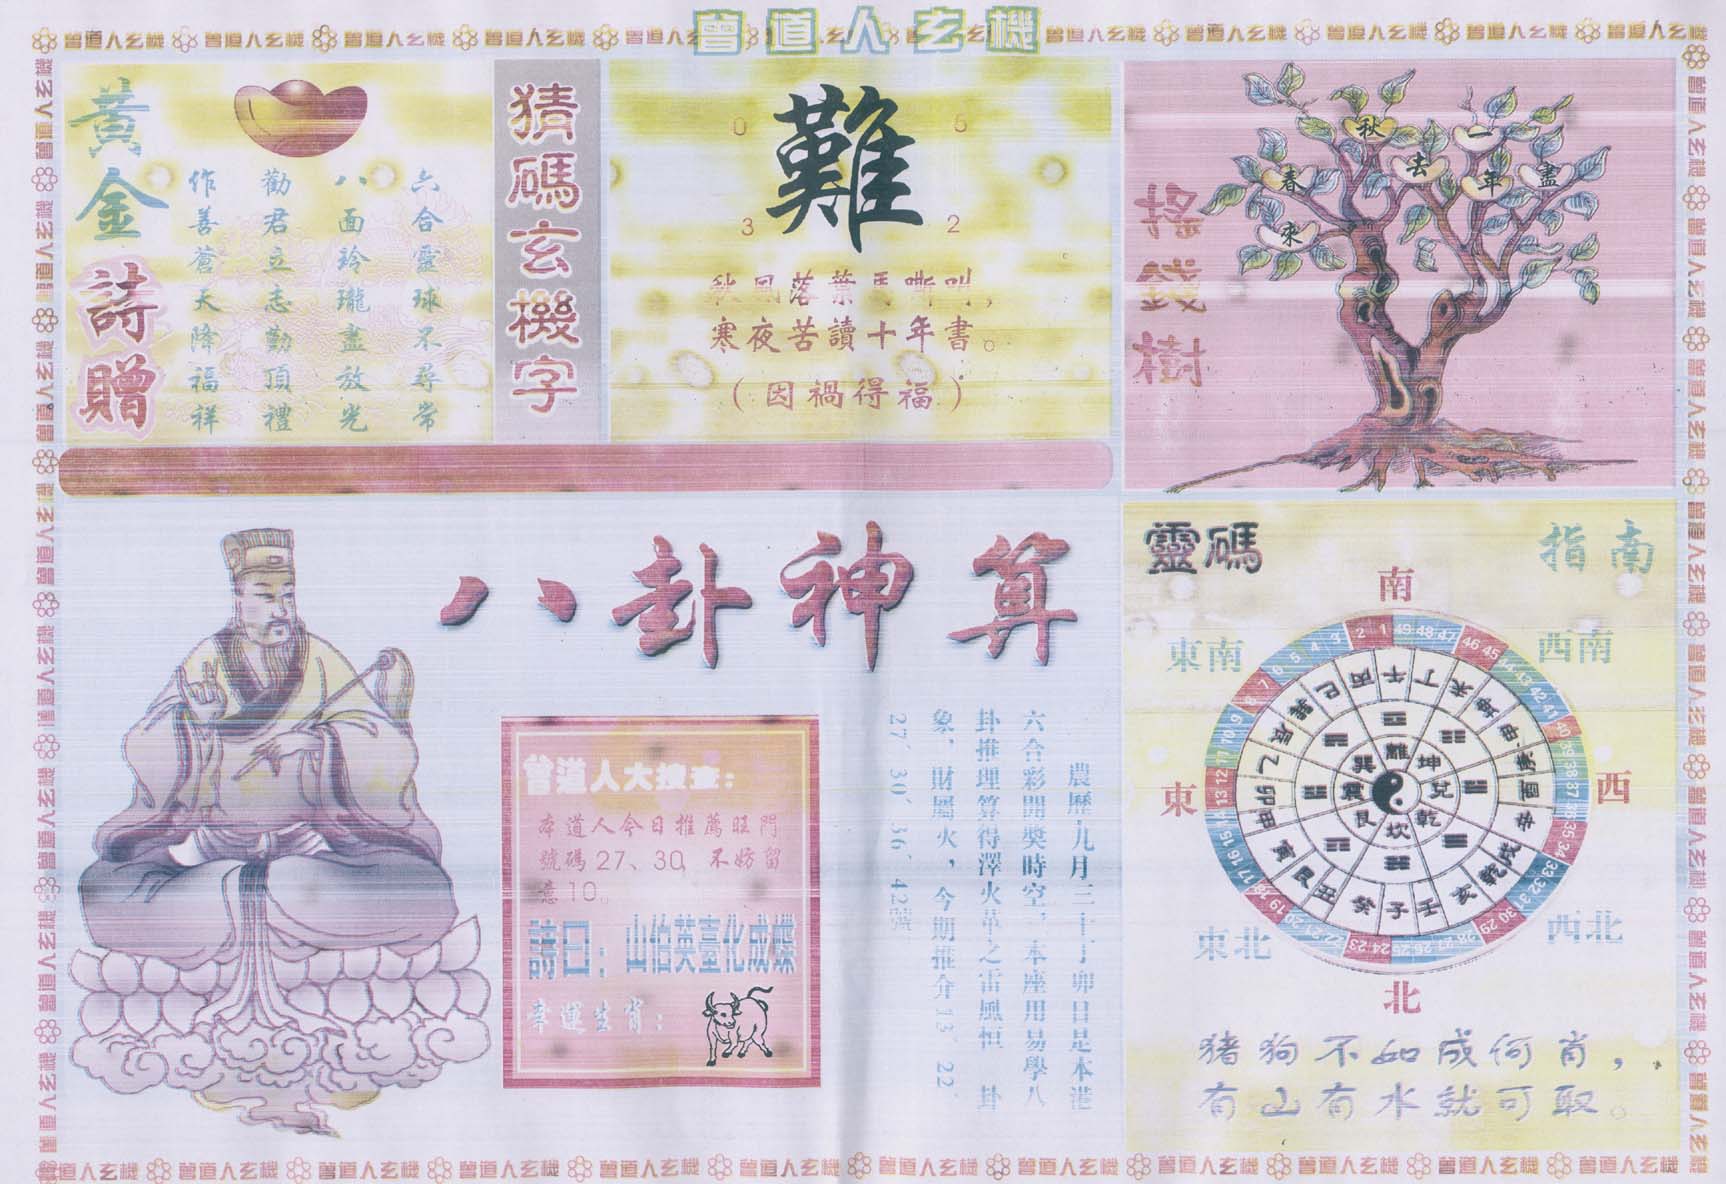 曾道人玄機
黃金詩贈
六合靈球不尋常
八面玲瓏盡放光
勸君立志勤頂禮
作善蒼天降福祥
猜碼玄機字
0 5
難
3 2
秋風落葉馬嘶叫，
寒夜苦讀十年書。
（因禍得福）
搖錢樹
春來秋去一年盡
八卦神算
農歷九月三十丁卯日是本港
六合彩開獎時空，本座用易學八
卦推理算得澤火革之雷風恒卦
象，財屬火，今期推介13、22、
27、30、36、42號
曾道人大搜查：
本道人今日推薦旺門
號碼27、30，不妨留
意10。
詩曰：山伯英臺化成蝶
幸運生肖：
靈碼指南
南
東南 西南
東 西
東北 西北
北
離坤兌乾坎艮震巽
豬狗不如成何肖，
有山有水就可取。